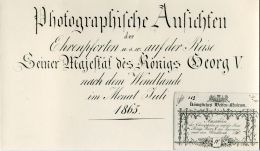 Photographische Ansichten
der
Ehrenpforten u.s.w. auf der Reise
Seiner Majestät des Königs Georg V
nach dem Wendlande
im Monat Juli
1865.
Königliches Welfen-Museum.